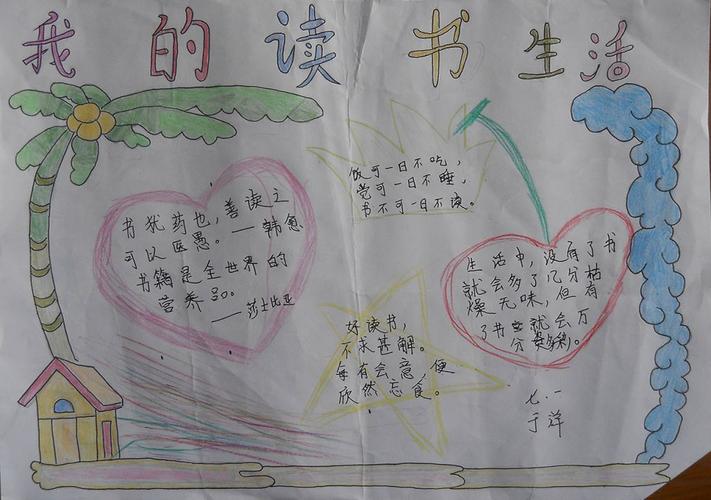 我的读书生活
书犹药也，善读之
可以医愚。——韩愈
书籍是全世界的
营养品。
——莎士比亚
饭可一日不吃，
觉可一日不睡，
书不可一日不读。
好读书，
不求甚解。
每有会意，便
欣然忘食。
生活中，没有了书
就会多了几分枯
燥无味，但有
了书就会万
分
七.一
于洋